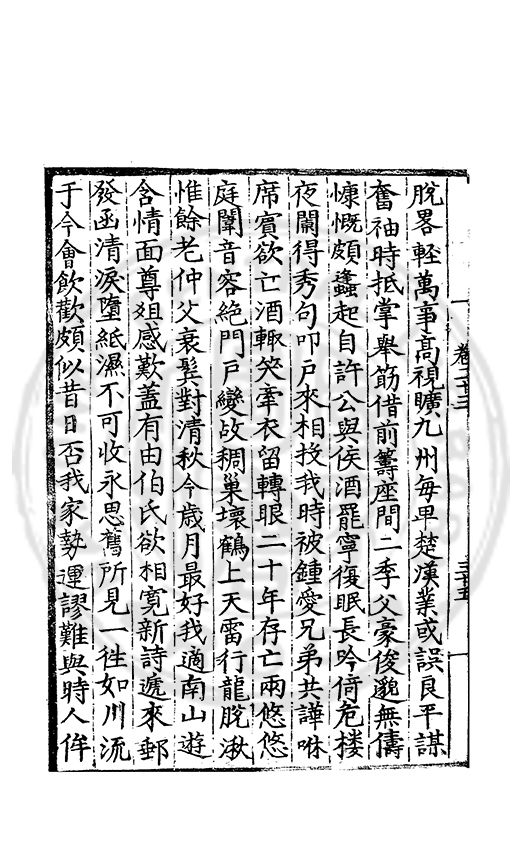 卷二十三
三十五
脫畧輕萬事高視曠九州每卑楚漢業或誤良平謀
奮袖時抵掌舉筯借前籌座間二季父豪俊邈無儔
慷慨頗蠭起自許公與侯酒罷寧復眠長吟倚危樓
夜闌得秀句叩戶來相投我時被鍾愛兄弟共譁咻
席賓欲亡酒輙笑牽衣留轉眼二十年存亡兩悠悠
庭闈音容絕門戶變故稠巢壞鶴上天雷行龍脫湫
惟餘老仲父衰鬂對清秋今歳月最好我適南山遊
含情面尊俎感歎蓋有由伯氏欲相寛新詩遞來郵
發函清淚墮紙濕不可收永思舊所見一徃如川流
于今會飲歡頗似昔日否我家勢運謬難與時人侔